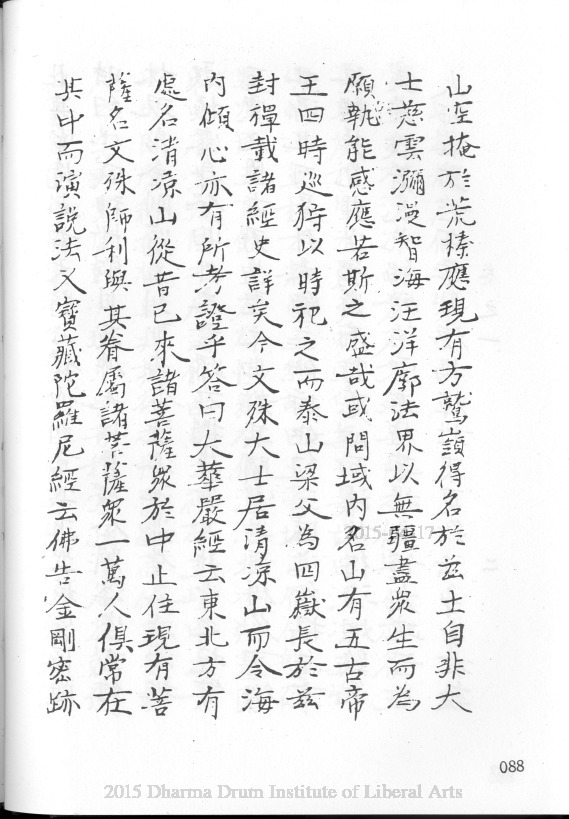 山空掩於荒榛應現有方鷲嶺得名於茲土自非大
士慈雲瀰漫智海汪洋廓法界以無疆盡衆生而為
願孰能感應若斯之盛哉或問域内名山有五古帝
王四時巡狩以時祀之而泰山梁父為四嶽長於茲
封禪載諸經史詳矣今文殊大士居清凉山而令海
内傾心亦有所考證乎答曰大華嚴經云東北方有
處名清凉山從昔已來諸菩薩衆於中止住現有菩
薩名文殊師利與其眷屬諸菩薩衆一萬人俱常在
其中而演說法又寶藏陀羅尼經云佛告金剛密跡
088
2015 Dharma Drum Institute of Liberal Arts